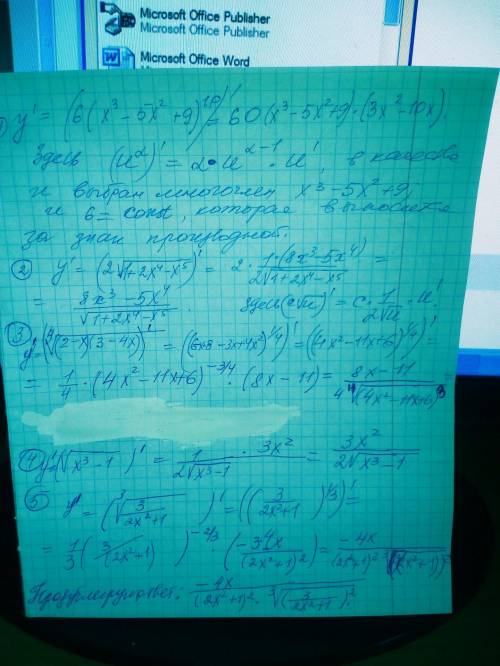 Microsoft Office Publisher
Microsoft Office Publisher
Microsoft Office Word
y' = (6(x³ – 5x² + 9)¹⁰)' = 60(x³ – 5x² + 9)·(3x² – 10x).
Здесь (u^α)' = α·u^(α–1)·u', в качестве
u выбран многочлен x³ – 5x² + 9,
и 6 = const, которая выносится
за знак производной.
② y' = (2√(1+2x⁴–x⁵))' = 2·1·(8x³–5x⁴)/(2√(1+2x⁴–x⁵)) =
= (8x³–5x⁴)/√(1+2x⁴–x⁵). Здесь (c√u)' = c·1/(2√u)·u'.
③ y' = (⁴√((2–x)(3–4x)))' = ((6–8x–3x+4x²)^(1/4))' = ((4x²–11x+6)^(1/4))' =
= 1/4·(4x²–11x+6)^(–3/4)·(8x–11) = (8x–11)/(4 ⁴√((4x²–11x+6)³)) =
④ y' = (√(x³–1))' = 1/(2√(x³–1))·3x² = 3x²/(2√(x³–1))
⑤ y' = (³√(3/(2x²+1)))' = ((3/(2x²+1))^(1/3))' =
= 1/3(3/(2x²+1))^(–2/3)·(–3·4x/(2x²+1)²) = –4x/((2x²+1)²
–4x/((2x²+1)²·³√((3/(2x²+1))²)).